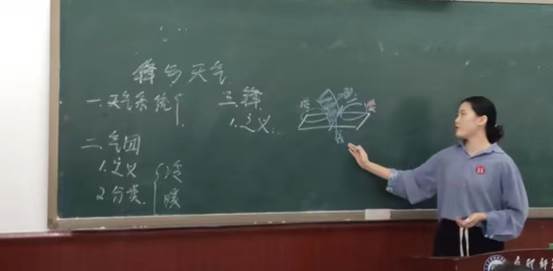 锋与天气
一.天气系统{
二.气团
1.定义
2.分类{冷
暖
三.锋
1.定义: